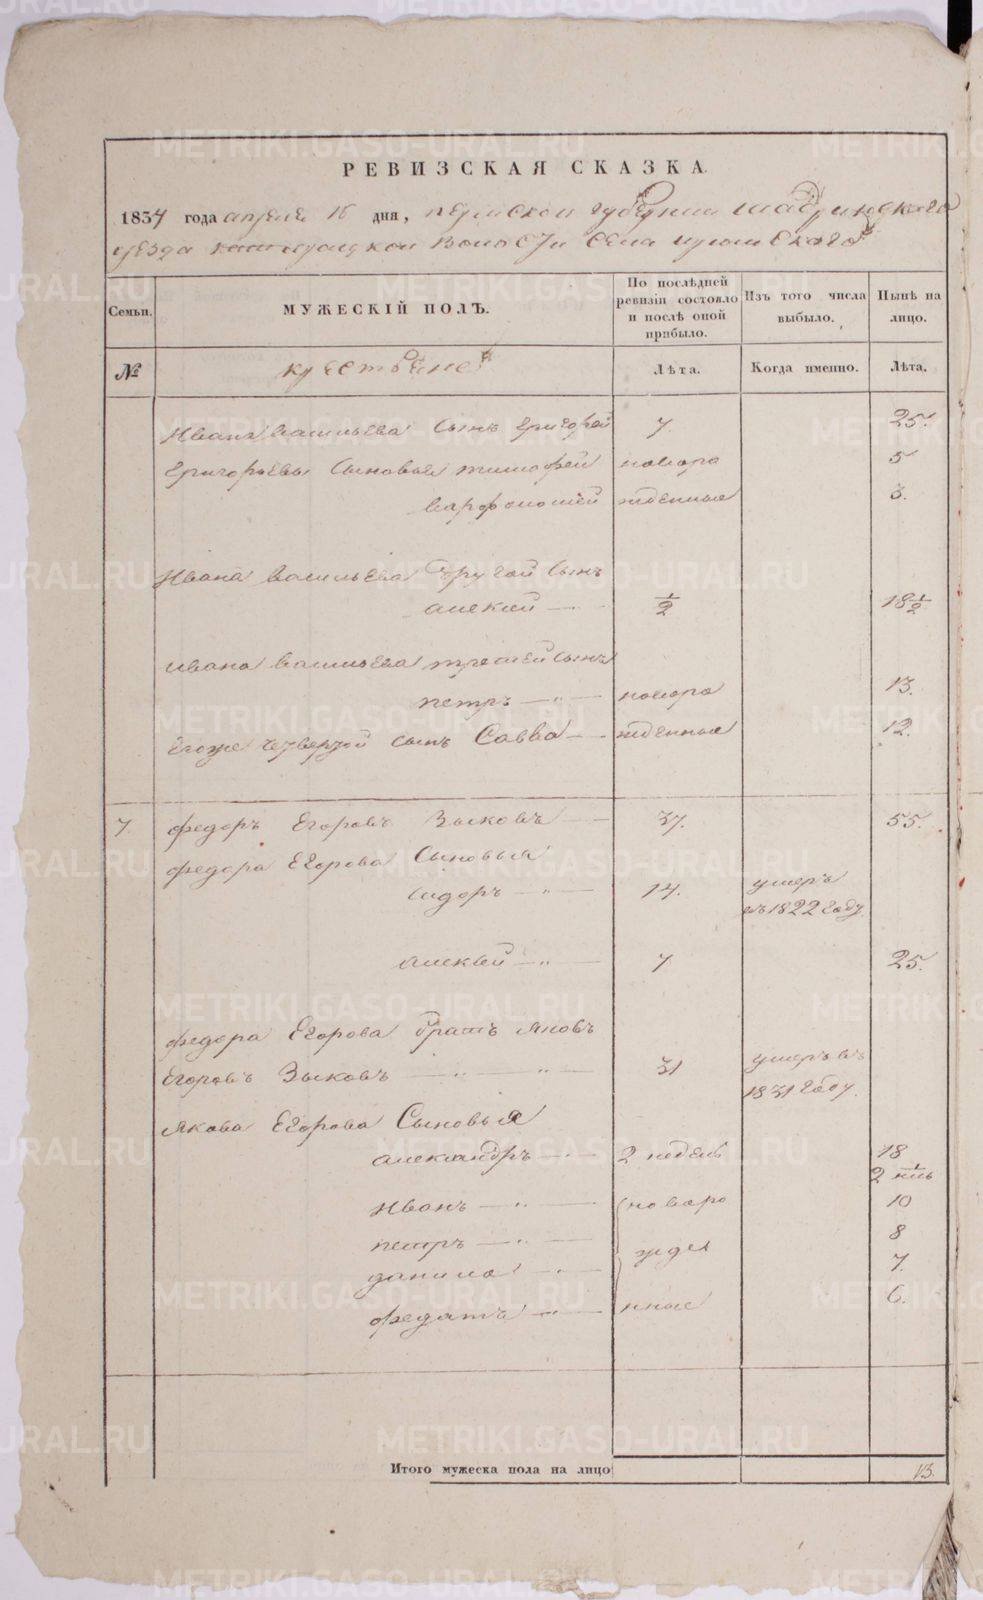 РЕВИЗСКАЯ СКАЗКА.
1834 года апреля 16 дня, пермской губернии шадринскаго
уезда волости села
Семьи. МУЖЕСКІЙ ПОЛЪ. По послѣдней ревизіи состояло и послѣ оной прибыло. Изъ того числа выбыло. Нынѣ на лицо.
№ крестьяне Лѣта. Когда именно. Лѣта.
Ивана васильева сынъ григорей 7. 25.
григорьевы сыновья тимофей новоро 5
варфоломей жденные 3.
Ивана васильева другой сынъ
алексей — ½ 18½
ивана васильева третей сынъ
петръ — " — новоро 13.
Егоже четвертой сынъ Савва — жденные 12.
7. федоръ Егоровъ Зыковъ — 37. 55.
федора Егорова Сыновья
сидоръ — " — 14. умеръ
въ 1822 году.
алексей — " — 7 25.
федора Егорова братъ яковъ
Егоровъ Зыковъ — " — " — 31 умеръ въ
1831 году.
якова Егорова Сыновья
александръ — " — 2 недель 18
2 нль
Иванъ — " — новоро 10
петръ — " — 8
данило — " — жде 7.
федатъ — " — нные 6.
Итого мужеска пола на лицо 13.
METRIKI.GASO-URAL.RU